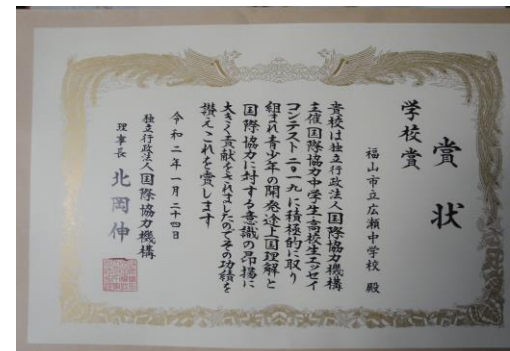 賞状
学校賞
福山市立広瀬中学校 殿
貴校は独立行政法人国際協力機構
主催国際協力中学生・高校生エッセイ
コンテスト二〇一九に積極的に取り
組まれ青少年の開発途上国理解と
国際協力に対する意識の昂揚に
大きく貢献をされましたのでその功績を
讃えこれを賞します
令和二年一月二十四日
独立行政法人国際協力機構
理事長 北岡伸